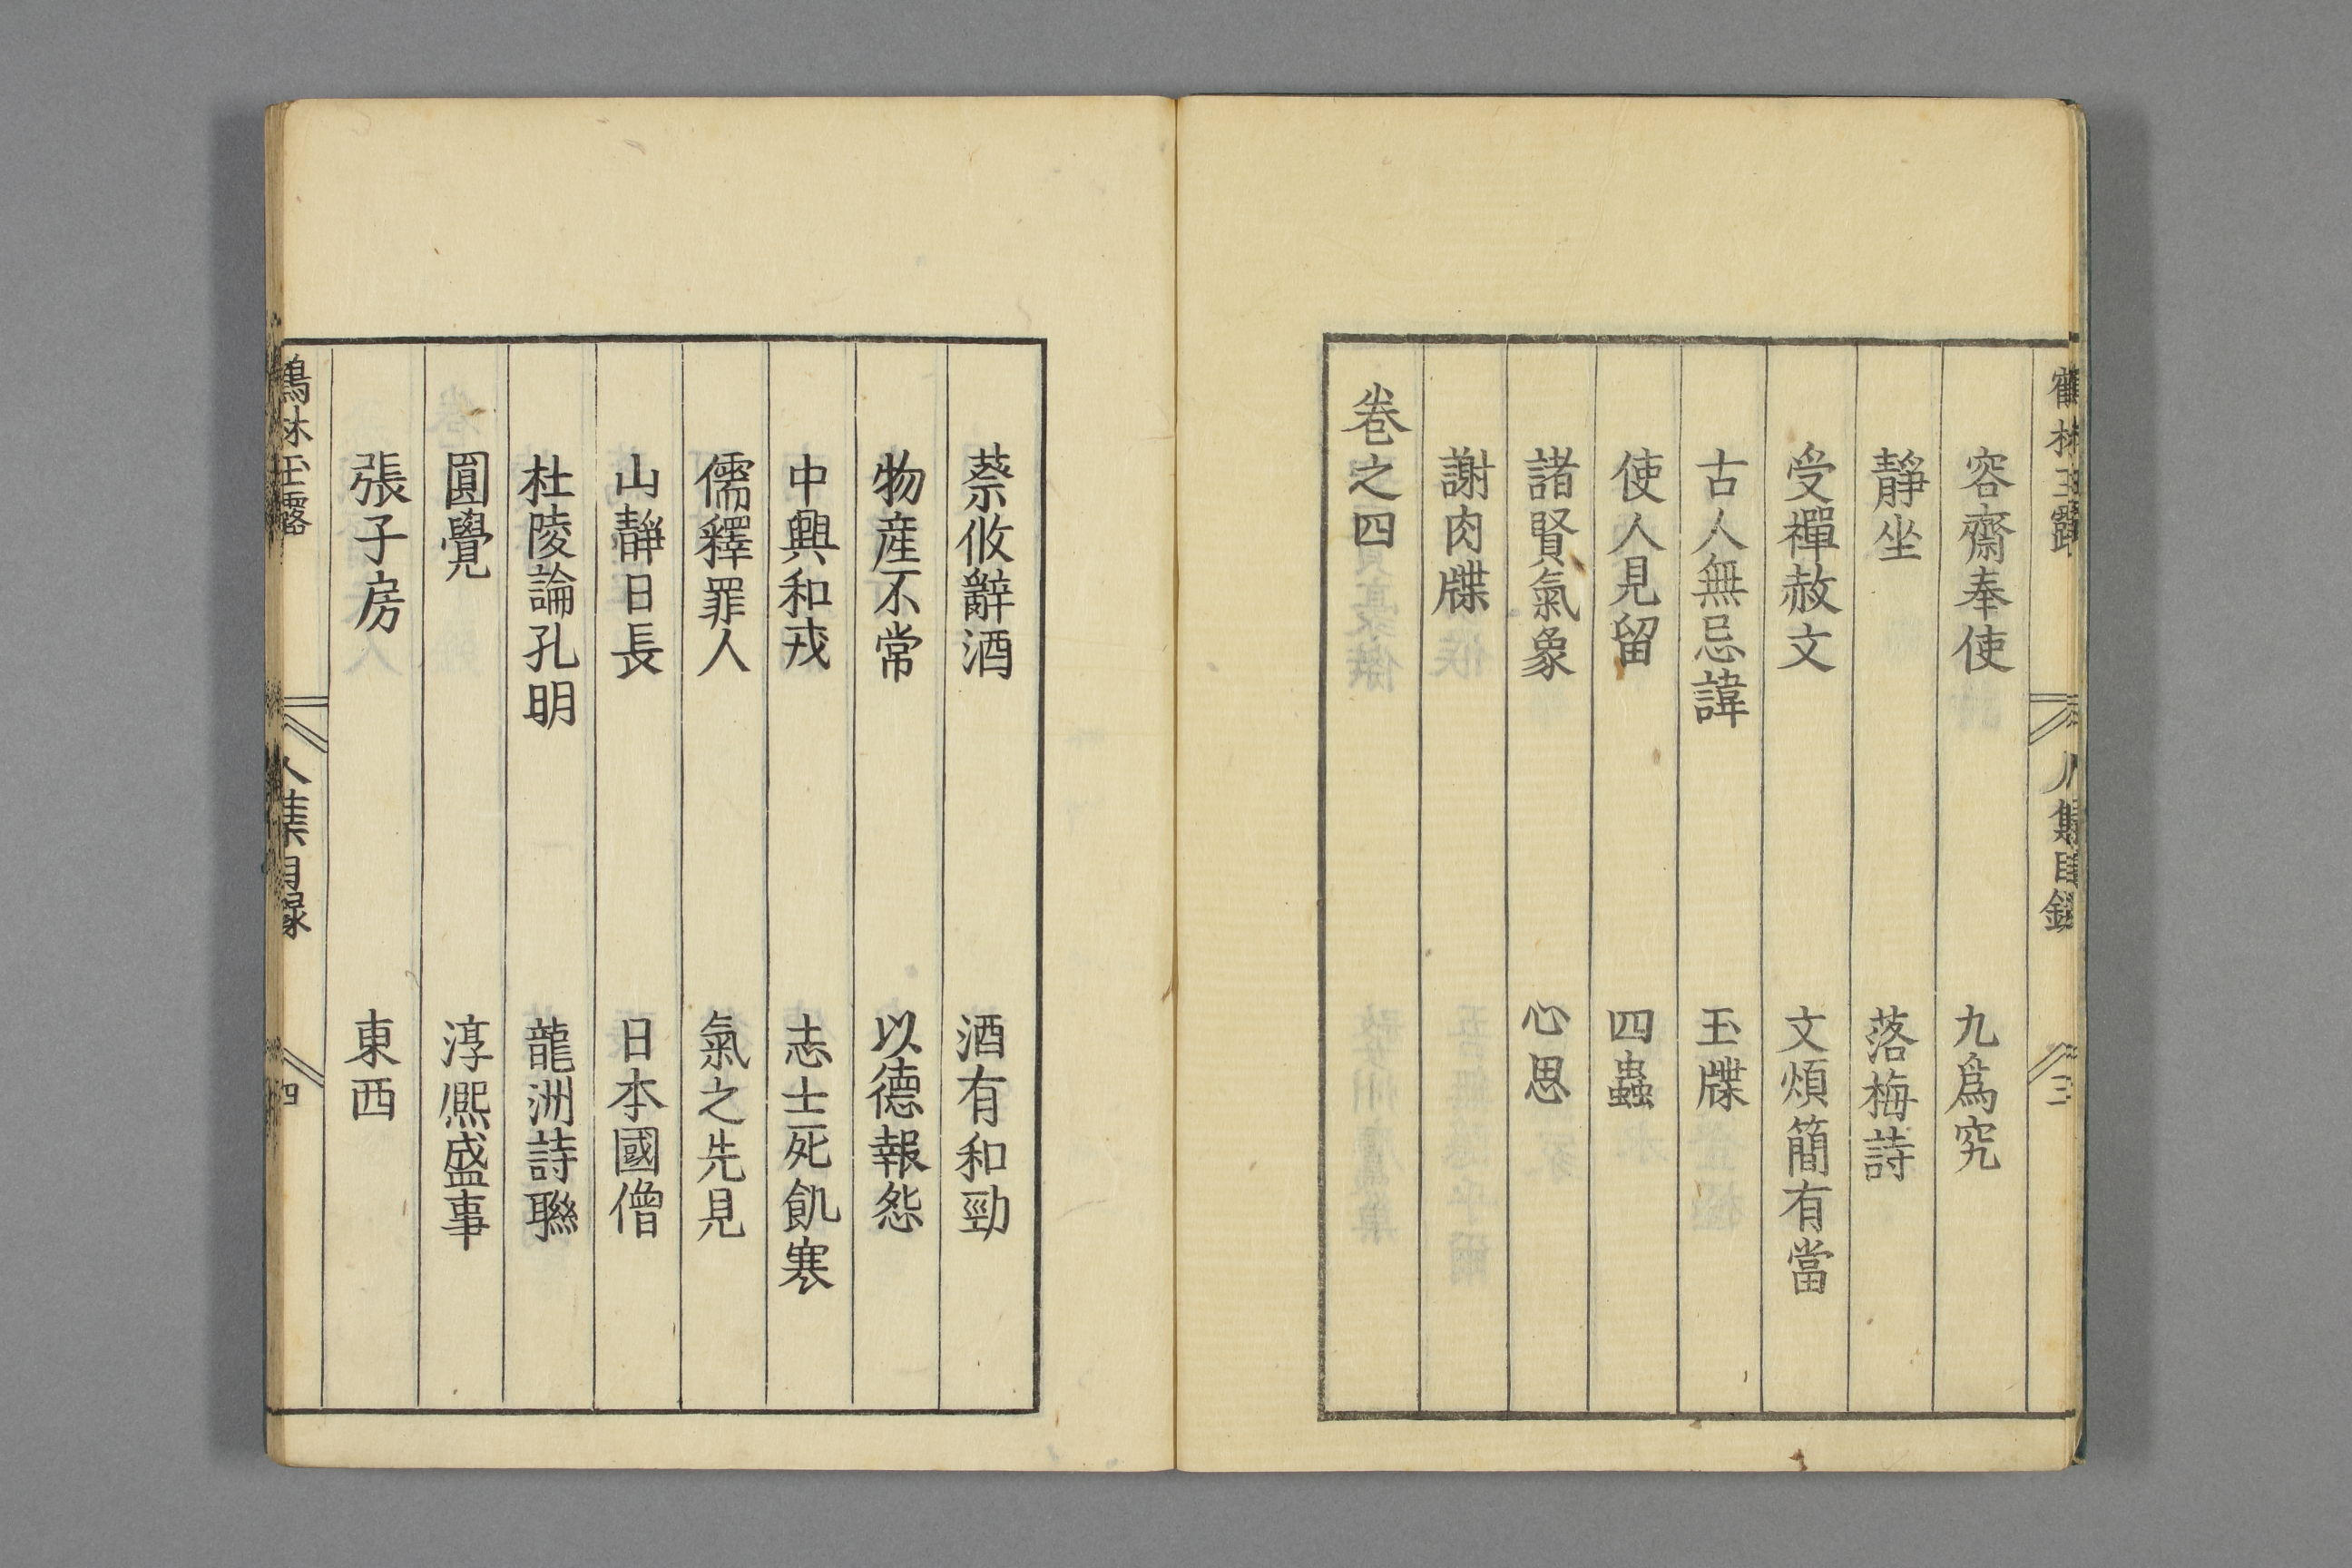 鶴林玉露 人集目錄 三
容齋奉使 九爲究
靜坐 落梅詩
受禪赦文 文煩簡有當
古人無忌諱 玉牒
使人見留 四蟲
諸賢氣象 心思
謝肉牒
卷之四
蔡攸辭酒 酒有和勁
物産不常 以德報怨
中興和戎 志士死飢寒
儒釋罪人 氣之先見
山靜日長 日本國僧
杜陵論孔明 龍洲詩聮
圓覺 淳熈盛事
張子房 東西
鶴林玉露 人集目錄 四